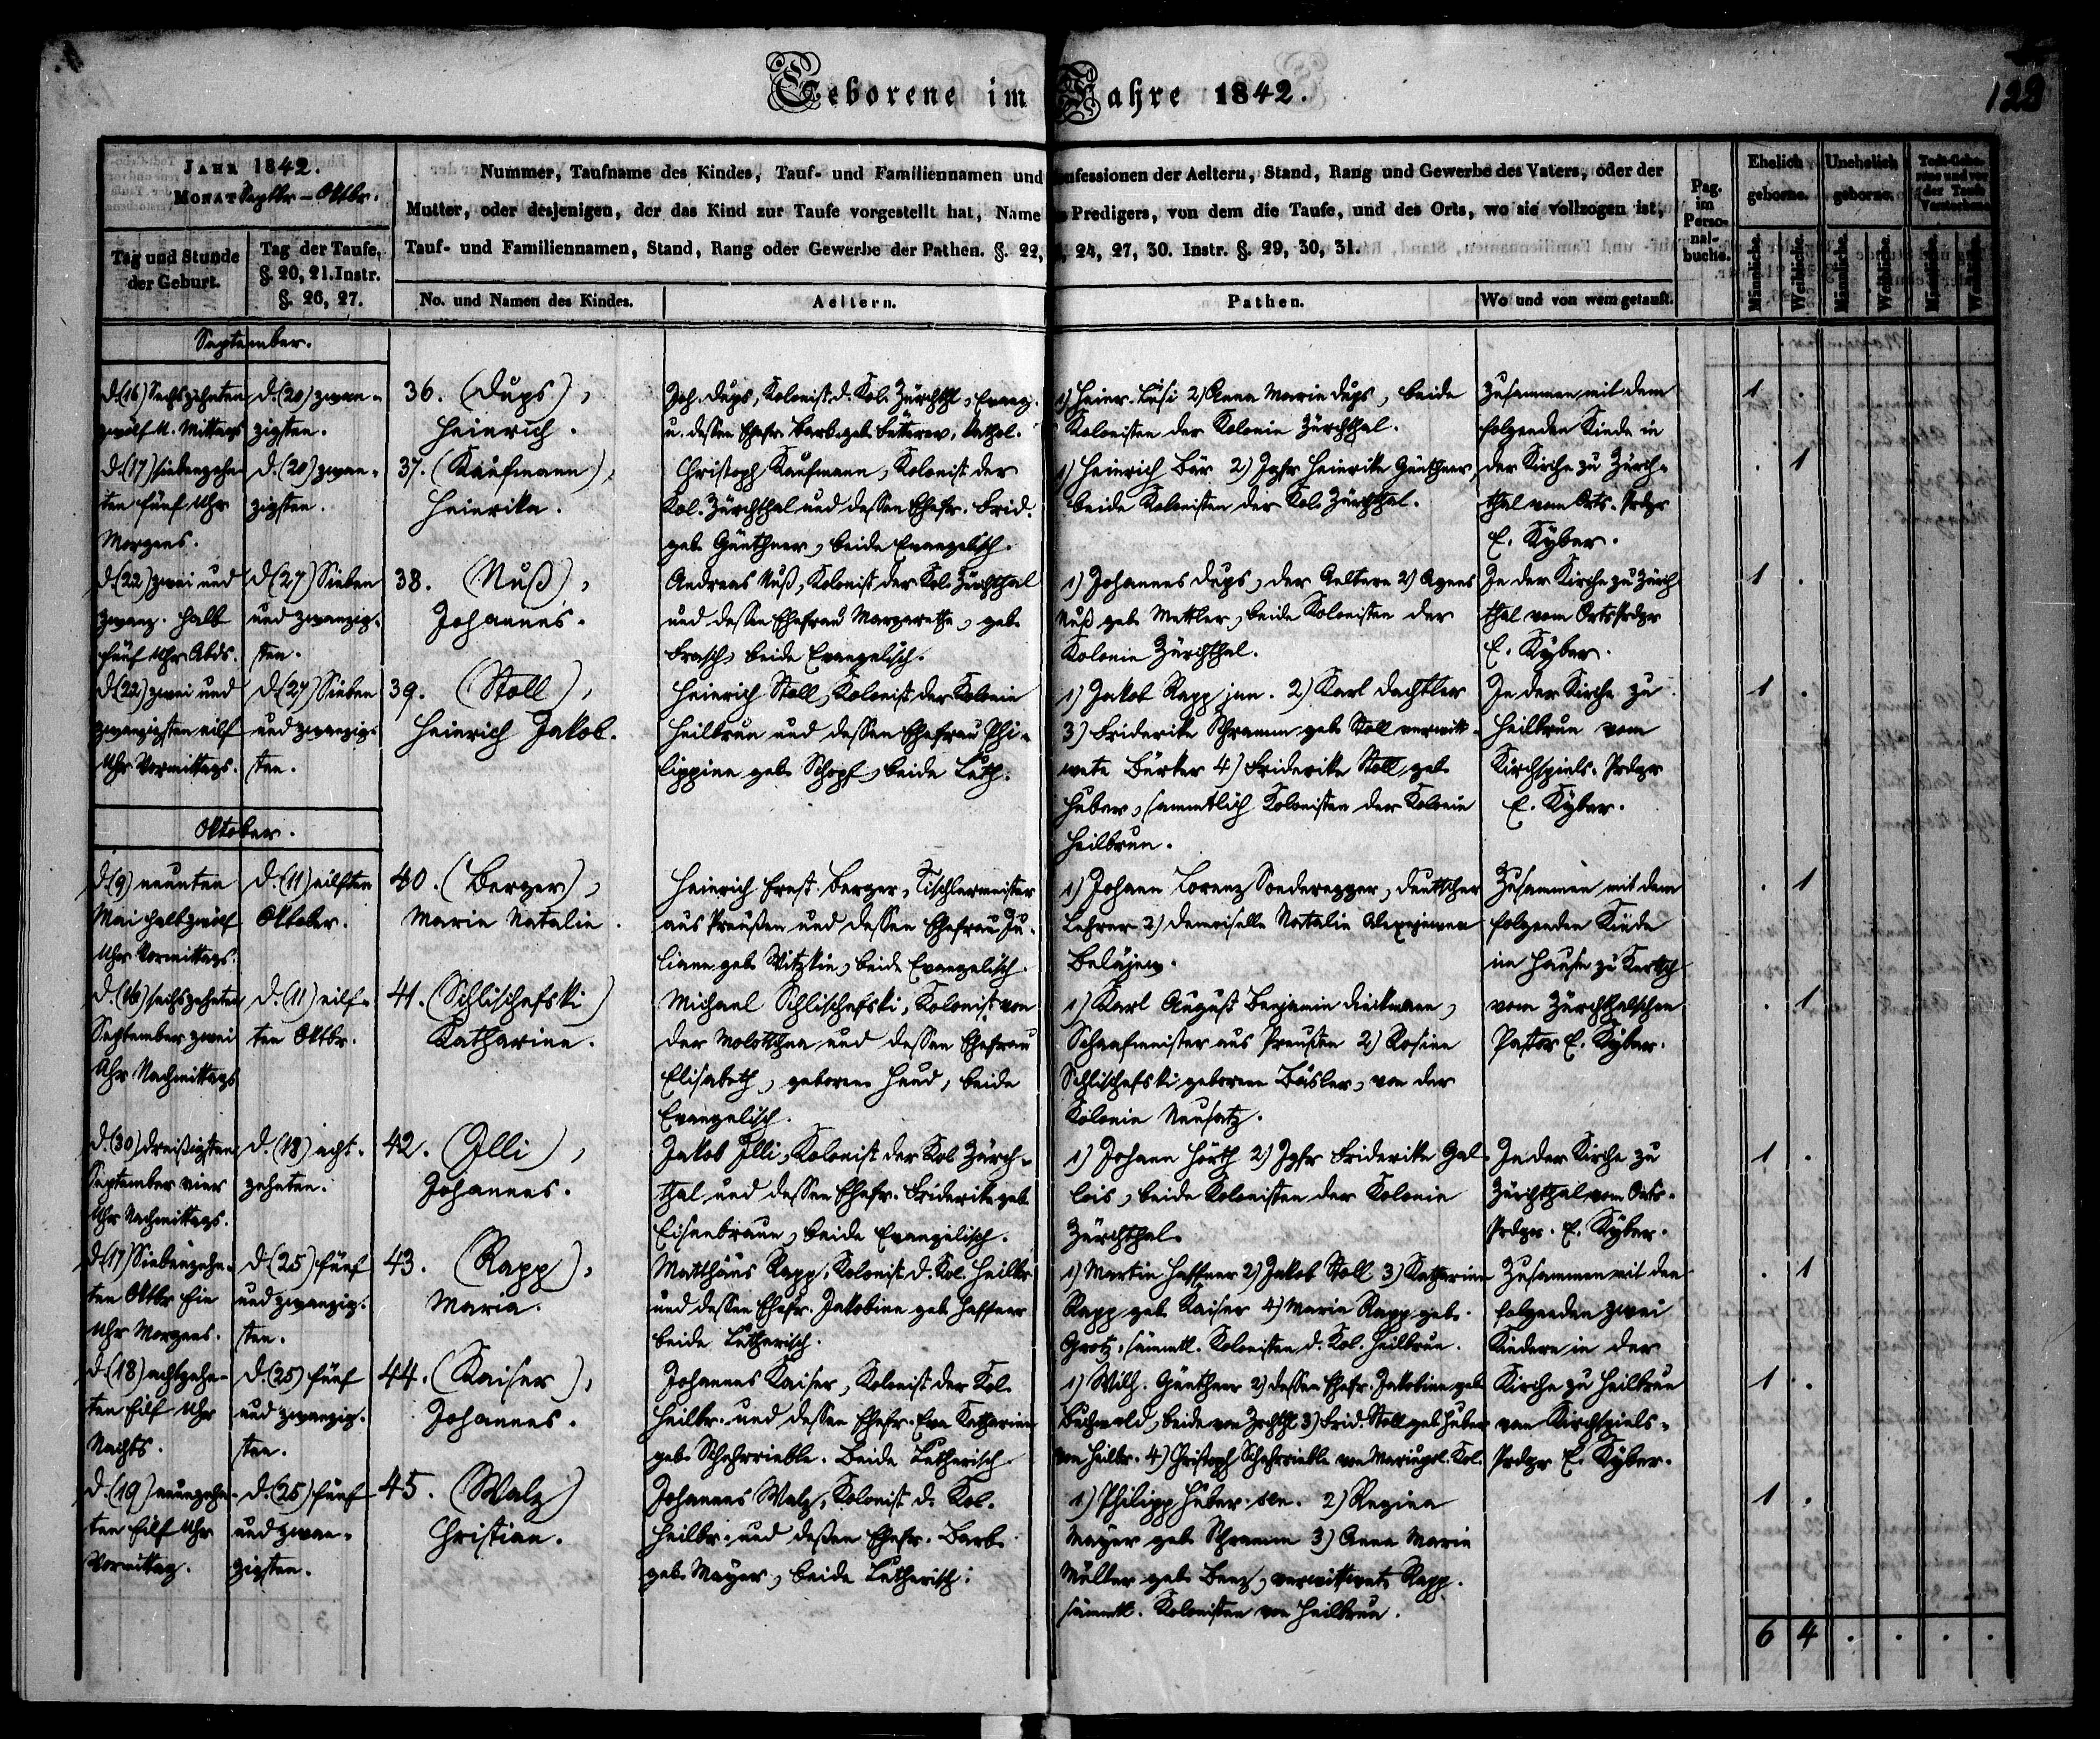 Geborene im Jahre 1842.
122
JAHR 1842.
MONAT Septbr - Oktbr.
Tag und Stunde der Geburt.
Tag der Taufe, §. 20, 21. Instr. §. 26, 27.
Nummer, Taufname des Kindes, Tauf- und Familiennamen und Confessionen der Aeltern, Stand, Rang und Gewerbe des Vaters, oder der
Mutter, oder desjenigen, der das Kind zur Taufe vorgestellt hat, Name des Predigers, von dem die Taufe, und des Orts, wo sie vollzogen ist,
Tauf- und Familiennamen, Stand, Rang oder Gewerbe der Pathen. §. 22, 24, 27, 30. Instr. §. 29, 30, 31.
No. und Namen des Kindes.
Aeltern.
Pathen.
Wo und von wem getauft.
Pag. im Perso-nal-buche.
Ehelich geborne.
Unehelich geborne.
Todt-Gebo-rene und vor der Taufe Verstorbene
Männliche. Weibliche. Männliche. Weibliche. Männliche. Weibliche.
September.
d. (16) Sechszehnten
zwölf U. Mittags
d. (20) zwan-
zigsten.
36. (Dups),
Heinrich.
Joh. Dups, Kolonist d. Kol. Zürchthl, Evang.
u. dessen Ehefr. Barb. geb. Fütterer, Kathol.
1) Heinr. Lüsi 2) Anna Maria Dups, beide
Kolonisten der Kolonie Zürchthal.
Zusammen mit dem
folgenden Kinde in
1 .
d. (17) siebenzehn-
ten fünf Uhr
Morgens.
d. (20) zwan-
zigsten.
37. (Kaufmann),
Heinrika.
Christoph Kaufmann, Kolonist der
Kol. Zürchthal und dessen Ehefr. Frid.
geb. Günthner, beide Evangelisch.
1) Heinrich Bär 2) Jgfr Heinrika Günthner,
beide Kolonisten der Kol. Zürchthal.
der Kirche zu Zürch-
thal vom Orts-Prdgr
E. Kyber.
. 1
d. (22) zwei und
zwanz. halb
fünf Uhr Abds.
d. (27) Sieben
und zwanzig-
sten.
38. (Nuß),
Johannes.
Andreas Nuß, Kolonist der Kol. Zürchthal
und dessen Ehefrau Margaretha, geb.
Frasch, beide Evangelisch.
1) Johannes Dups, der Aeltere 2) Agnes
Nuß geb. Mettler, beide Kolonisten der
Kolonie Zürchthal.
In der Kirche zu Zürch
thal vom Orts Prdgr
E. Kyber.
1 .
d. (22) zwei und
zwanzigsten eilf
Uhr Vormittags.
d. (27) Sieben
und zwanzig-
sten.
39. (Stoll),
Heinrich Jakob.
Heinrich Stoll, Kolonist der Kolonie
Heilbrun und dessen Ehefrau Phi-
lippine geb. Schopf, beide Luth.
1) Jakob Rapp jun. 2) Karl Dachtler
3) Friderike Schramm geb. Stoll verwitt-
wete Bürker 4) Friderike Stoll geb.
Huber, sammtlich Kolonisten der Kolonie
Heilbrun.
In der Kirche zu
Heilbrun vom
Kirchspiels-Prdgr
E. Kyber.
1 .
Oktober.
d. (9) neunten
Mai halb zwölf
Uhr Vormittags.
d. (11) eilften
Oktober.
40. (Berger),
Maria Natalie.
Heinrich Ernst Berger, Tischlermeister
aus Preußen und dessen Ehefrau Ju-
liane geb. Witzkie, beide Evangelisch.
1) Johann Lorenz Sonderegger, deutscher
Lehrer 2) Demoiselle Natalie Alexejewna
Beläjew.
Zusammen mit dem
folgenden Kinde
im Hause zu Kertsch
. 1
d. (16) sechszehnten
September zwei
Uhr Nachmittags
d. (11) eilf-
ten Oktbr.
41. (Schlischefski)
Katharina.
Michael Schlischefski, Kolonist von
der Molotschna und dessen Ehefrau
Elisabeth, geborene Hand, beide
Evangelisch.
1) Karl August Benjamin Dieckmann,
Schaafmeister aus Preußen 2) Rosine
Schlischefski geborene Bäsler, von der
Kolonie Neusatz.
vom Zürchthalschen
Pastor E. Kyber.
. 1
d. (30) dreißigsten
September vier
Uhr Nachmittags.
d. (18) acht-
zehnten.
42. (Illi),
Johannes.
Jakob Illi, Kolonist der Kol. Zürch-
thal und dessen Ehefr. Friderike geb.
Eisenbraun, beide Evangelisch.
1) Johann Hörth 2) Jgfr Friderike Gal-
lois, beide Kolonisten der Kolonie
Zürchthal.
In der Kirche zu
Zürchthal vom Orts-
Prdgr. E. Kyber.
1 .
d. (17) Siebenzehn-
ten Oktbr Ein
Uhr Morgens.
d. (25) fünf
und zwanzig-
sten.
43. (Rapp),
Maria.
Matthäus Rapp, Kolonist d. Kol. Heilbr.
und dessen Ehefr. Jakobine geb. Haffner
beide Lutherisch.
1) Martin Haffner 2) Jakob Stoll 3) Katharina
Rapp geb. Kaiser 4) Maria Rapp geb.
Grotz, sämmtl. Kolonisten d. Kol. Heilbrun.
Zusammen mit den
folgenden zwei
Kindern in der
. 1
d. (18) achtzehn-
ten Eilf Uhr
Nachts.
d. (25) fünf
und zwanzig-
sten.
44. (Kaiser),
Johannes.
Johannes Kaiser, Kolonist der Kol.
Heilbr. und dessen Ehefr. Eva Katharina
geb. Schafrrieble. Beide Lutherisch
1) Wilh. Günthner 2) dessen Ehefr. Jakobine geb.
Buchwald, beide von Zrchthl 3) Frid. Stoll geb. Huber
von Heilbr. 4) Christoph von Mariupol. Kol.
Kirche zu Heilbrun
vom Kirchspiels-
Prdgr E. Kyber.
1 .
d. (19) neunzehn-
ten Eilf Uhr
Vormittag.
d. (25) fünf
und zwan-
zigsten.
45. (Walz)
Christian.
Johannes Walz, Kolonist d. Kol.
Heilbr. und dessen Ehefr. Barb.
geb. Mayer, beide Lutherisch.
1) Philipp Huber sen. 2) Regina
Mayer geb. Schramm 3) Anna Maria
Müller geb. Benz, verwittwete Rapp.
sämmtl. Kolonisten von Heilbrun.
1 .
6 4 . . . .